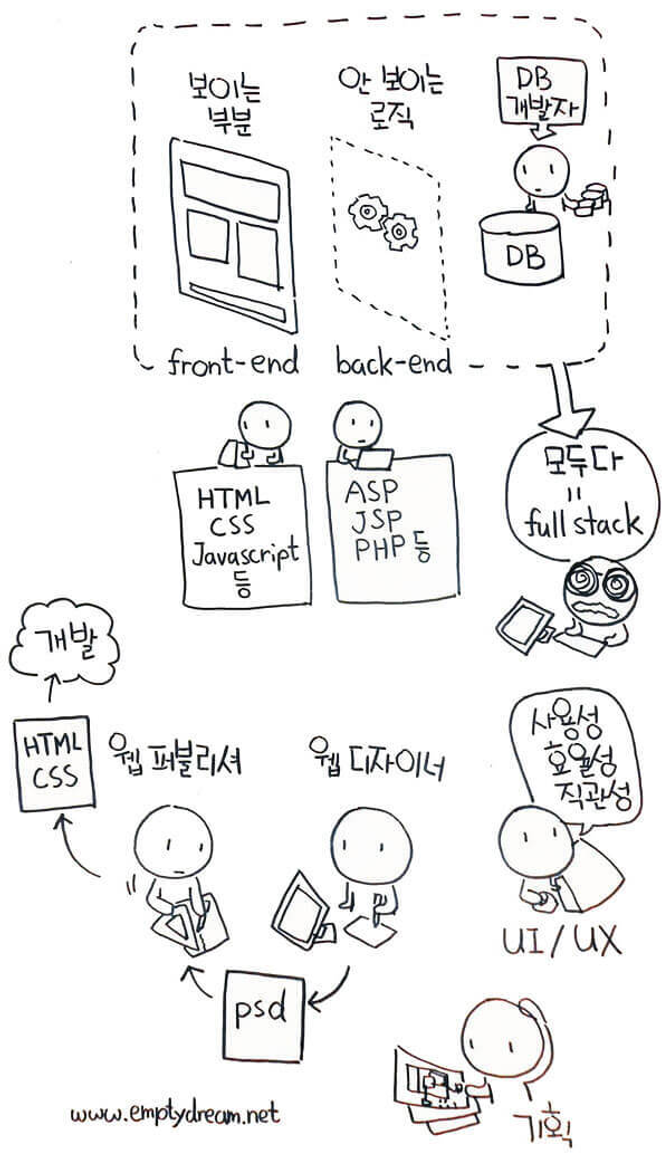 보이는
부분
안 보이는
로직
DB
개발자
DB
front-end
back-end
HTML
CSS
Javascript
등
ASP
JSP
PHP 등
모두 다
=
full stack
개발
HTML
CSS
웹 퍼블리셔
웹 디자이너
psd
사용성
효율성
직관성
UI / UX
기획
www.emptydream.net